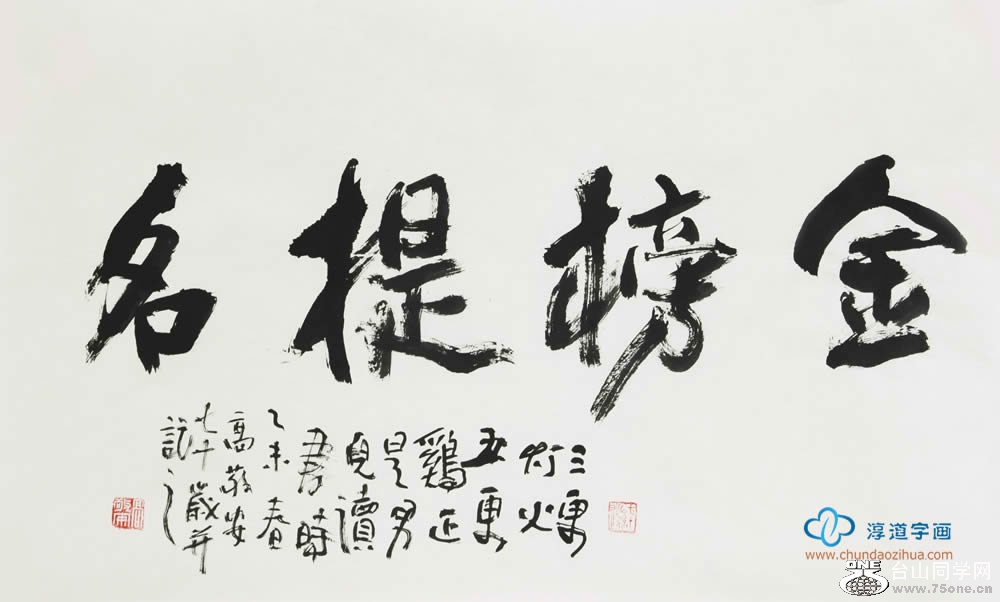 金榜提名
三更
灯火
五更
鷄正
是男
児讀
書時
乙未春
高敬安
七十歲并
記之
淳道字画
www.chundaozihua.com
ONE
台山同学网
www.75one.cn